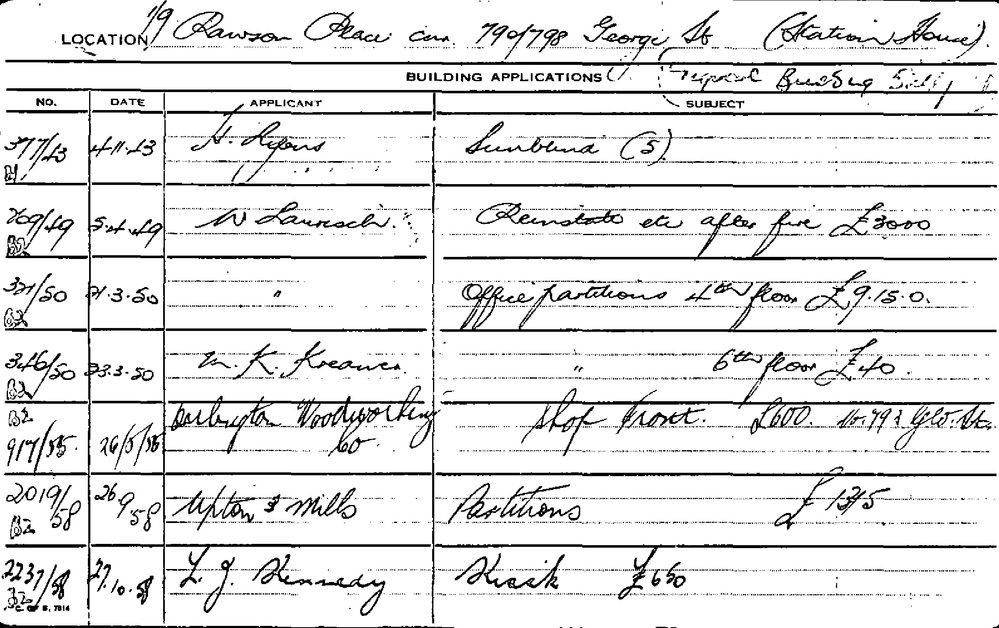 LOCATION 1/9 Rawson Place cnr. 790/798 George St (Station House).
BUILDING APPLICATIONS Building
NO. DATE APPLICANT SUBJECT
377/43 4.11.43 H. Sunblind (5)
B2
269/49 5.4.49 W Reinstate etc after fire £3000
B2
321/50 21.3.50 " Office partitions 4th floor £9.15.0.
B2
346/50 23.3.50 M. K. " 6th floor £40.
B2
B2 Darlington Woodworking Shop Front. £600. No. 792 Geo. St.
917/55. 26/5/55 Co.
2019/58 26 9 58 Upton & Mills Partitions £1315
B2
2237/58 27.10.58 L. J. Kennedy Kiosk £650
B2